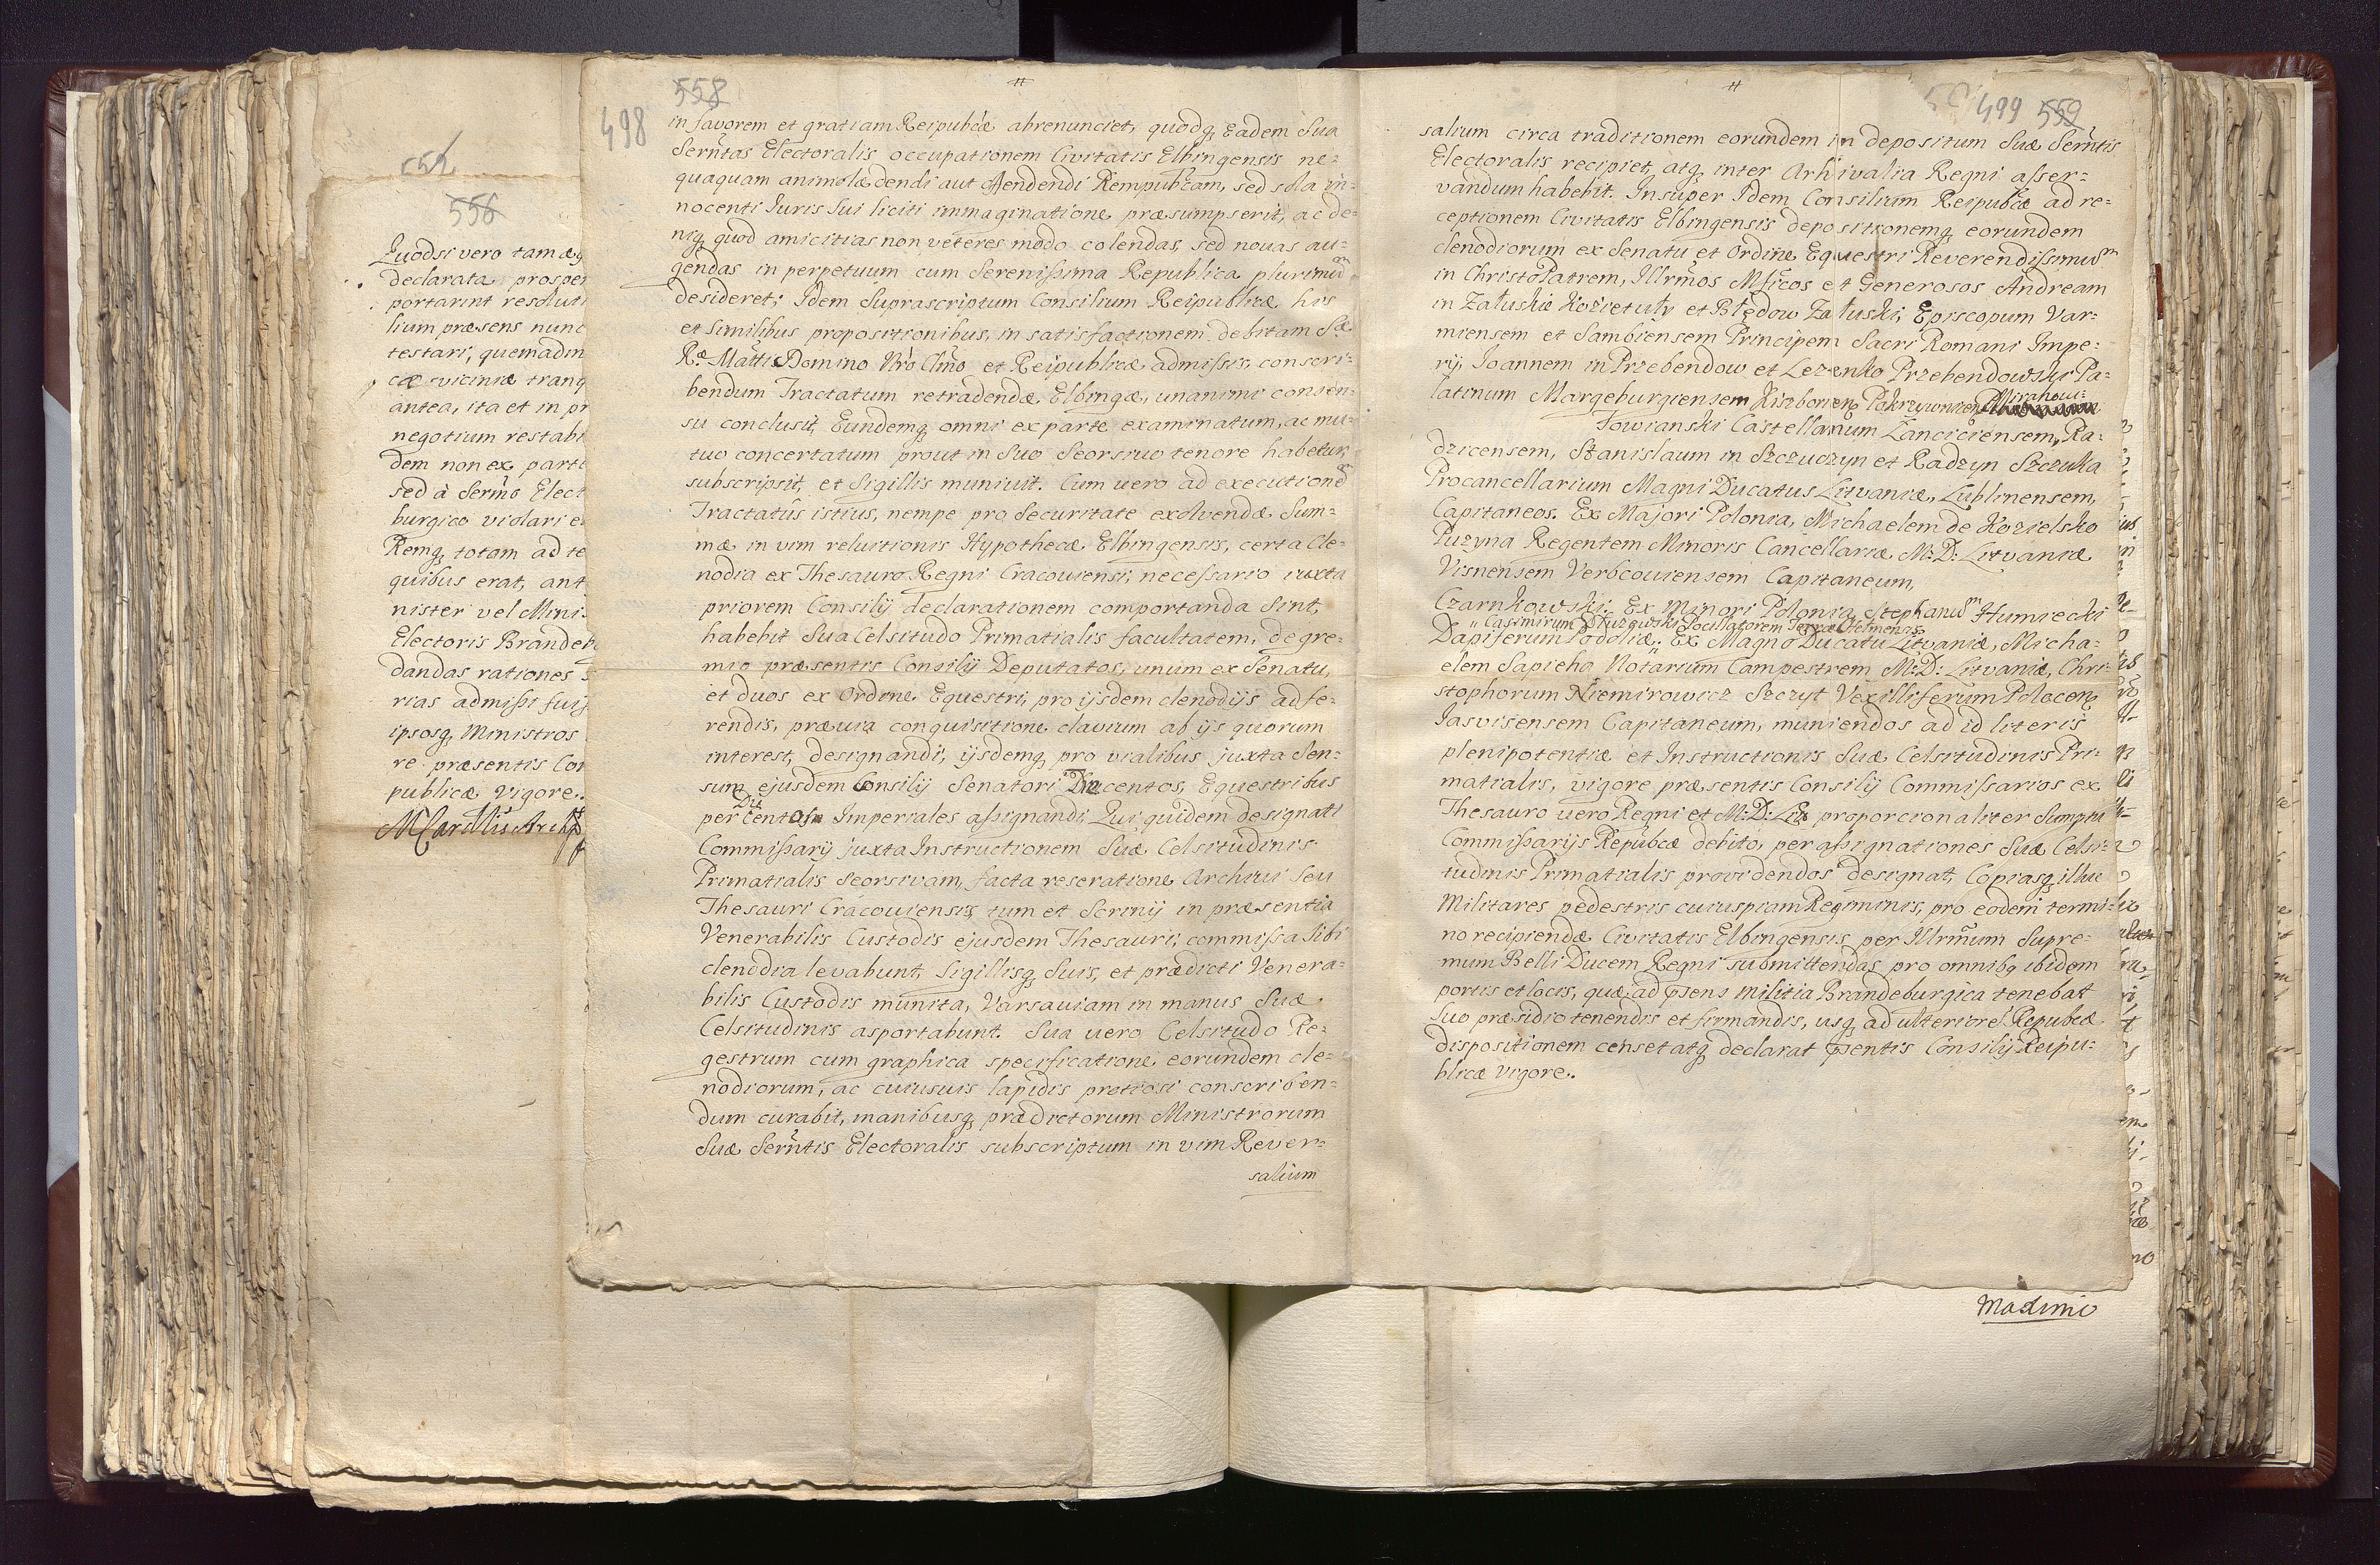 552
556
Quodsi vero tam æq
declarata prosper
portarint resoluti
lium præsens nunc
testari, quemadm
cæ viciniæ tranq
antea, ita et in pr
negotium restabi
dem non ex parte
sed à Sermo Elect
burgico violari e
Remq, totam ad te
quibus erat, ant
nister vel Minis
Electoris Brandeb
dandas rationes
rias admissi fuis
ipsosq, Ministros
re præsentis Con
publicæ vigore.
M Cardlis Archi
558
498
in favorem et gratiam Reipublcæ abrenunciet, quodq, Eadem Sua
Sermtas Electoralis occupationem Civitatis Elbingensis ne=
quaquam animo lædendi aut offendendi Rempublcam, sed sola in=
nocenti Juris Sui liciti immaginatione præsumpserit, ac de=
niq, quod amicitias non veteres modo colendas, sed novas au=
gendas in perpetuum cum Serenissima Republica plurimum
desideret; Idem Suprascriptum Consilium Reipublicæ his
et similibus propositionibus, in satisfactionem debitam Sæ
Ræ Mattis Domino Nro Clmo et Reipublicæ admissis, conscri=
bendum Tractatum retradendæ, Elbingæ, unanimi consen=
su conclusit, Eundemq, omni ex parte examinatum, ac mu=
tuo concertatum prout in Suo Seorsivo tenore habetur
subscripsit, et Sigillis munivit. Cum vero ad executionem
Tractatûs istius, nempe pro Securitate exolvendæ Sum=
mæ in vim reluitionis Hypothecæ Elbingensis, certa Cle=
nodia ex Thesauro Regni Cracoviensi, necessario iuxta
priorem Consilij declarationem comportanda sint,
habebit Sua Celsitudo Primatialis facultatem, de gre=
mio præsentis Consilij Deputatos, unum ex Senatu,
et duos ex Ordine Equestri, pro ijsdem clenodijs adfe=
rendis, prævia conquisitione clavium ab ijs quorum
interest, designandi, ijsdemq, pro vialibus juxta Sen=
sum ejusdem Consilij Senatori Ducentos, Equestribus
Du
per centos Imperiales assignandi. Qui quidem designati
Commissarij juxta Instructionem Suæ Celsitudinis
Primatialis Seorsivam, facta reseratione Archivi Seu
Thesauri Cracoviensis, tum et Scrinij in præsentia
Venerabilis Custodis ejusdem Thesauri, commissa Sibi
clenodia levabunt, Sigillisq, Suis, et prædicti Venera=
bilis Custodis munita, Varsaviam in manus Suæ
Celsitudinis asportabunt. Sua vero Celsitudo Re=
gestrum cum graphica specificatione eorundem cle=
nodiorum, ac cuiusvis lapidis pretiosi conscriben=
dum curabit, manibusq, prædictorum Ministrorum
Suæ Sermtis Electoralis subscriptum in vim Rever=
salium
499 559
salium circa traditionem eorundem in depositum Suæ Sermtis
Electoralis recipiet, atq, inter Arhivalia Regni asser=
vandum habebit. Insuper Idem Consilium Reipublcæ ad re=
ceptionem Civitatis Elbingensis depositionemq, eorundem
clenodiorum ex Senatu et Ordine Equestri Reverendissimum
in Christo Patrem, Illrmos Mficos et Generosos Andream
in Załuskie Kozietuły et Błędow Załuski, Episcopum Var=
miensem et Sambiensem Principem Sacri Romani Impe=
rij, Joannem in Przebendow et Lezenko Przebendowski Pa=
latinum Margeburgiensem Kiszborien, Pokrzywnicen, Mirahow=
Towianski Castellanum Lanciciensem, Ra=
dzicensem, Stanislaum in Szczuczyn et Radzyn Szczuka
Procancellarium Magni Ducatus Litvaniæ, Lublinensem,
Capitaneos. Ex Majori Polonia, Michaelem de Kozielsko
Puzyna Regentem Minoris Cancellariæ M: D: Litvaniæ
Visnensem Verbcoviensem Capitaneum,
Czarnkowski. Ex Minori Polonia, Stephanum Humiecki
Casimirum Dłuzewski Pocillatorem Terræ Chelmensis
Dapiferum Podoliæ,, Ex Magno Ducatu Litvaniæ, Micha=
elem Sapieha Notarium Campestrem M: D: Litvaniæ, Chri=
stophorum Niemirowicz Szczyt Vexilliferum Polocen,
Jasvisensem Capitaneum, muniendos ad id literis
plenipotentiæ et Instructionis Suæ Celsitudinis Pri=
matialis, vigore præsentis Consilij Commissarios ex
Thesauro vero Regni et M: D: Lit proporcionaliter Sumptu
Commissarijs Reipubcæ debito, per assignationes Suæ Celsi=
tudinis Primatialis providendos designat, Copiasq, illuc
Militares pedestris cuiuspiam Regiminis, pro eodem termi=
no recipiendæ Civitatis Elbingensis per Illrmum Supre=
mum Belli Ducem Regni submittendas pro omnibq ibidem
portis et locis, quæ ad psens militia Brandeburgica tenebat
Suo præsidio tenendis et firmandis, usq, ad ulteriorem Reipubcæ
dispositionem censet atq, declarat psentis Consilij Reipu=
blicæ vigore.
Maximo